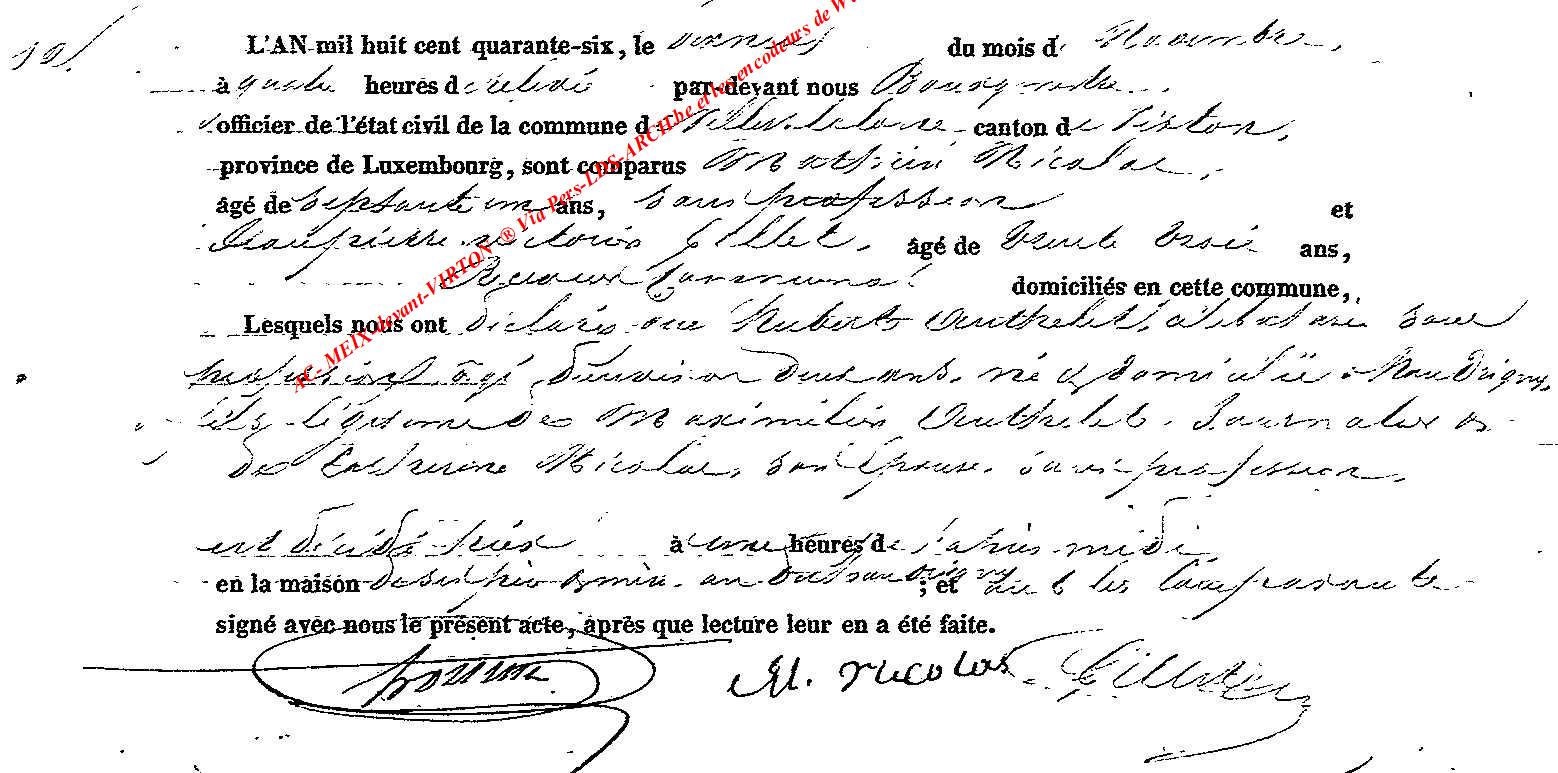 12/.
L'AN mil huit cent quarante-six, le du mois de Novembre,
à quatre heures de relevée par-devant nous Bourgmestre
officier de l'état civil de la commune de Villers-la-loue canton de Virton,
province de Luxembourg, sont comparus Mathieu Nicolas,
âgé de septante un ans, sans profession et
Jean pierre Gillet, âgé de trente trois ans,
Receveur Communal domiciliés en cette commune,
Lesquels nous ont déclaré que Hubert Authelet, célibataire sans
profession âgé d'environ deux ans, né et domicilié à Houdrigny,
fils légitime de Maximilien Authelet, Journalier et
de Catherine Nicolas, son épouse, sans profession,
est décédé hier à une heures de l'après midi
en la maison de ses père et mère, au dit houdrigny ; et ont les comparants
signé avec nous le présent acte, après que lecture leur en a été faite.
M. Nicolas Gillet
AC- MEIX-devant-VIRTON ® Via Pers-LDS-ARCH.be et les encodeurs de